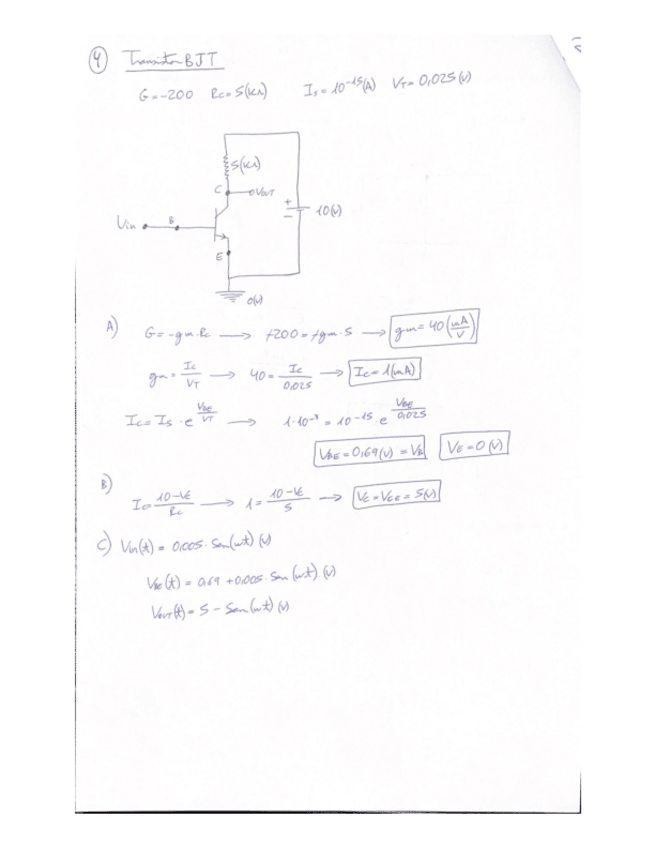 4 Transistor BJT
G=-200 Rc=5(kΩ) Is=10^-15(A) VT=0,025(V)
5(kΩ)
C VOUT
+
-
10(V)
Vin B
E
0(V)
A) G=-gm·Rc → +200=+gm·5 → gm=40(mA/V)
gm=Ic/VT → 40=Ic/0,025 → Ic=1(mA)
Ic=Is·e^(VBE/VT) → 1·10^-3=10^-15 e^(VBE/0,025)
VBE=0,69(V)=VB VE=0(V)
B) Ic=10-VC/Rc → 1=10-VC/5 → VC=VCE=5(V)
C) Vin(t)=0,005·Sen(wt)(V)
VBE(t)=0,69+0,005·Sen(wt)(V)
VOUT(t)=5-Sen(wt)(V)